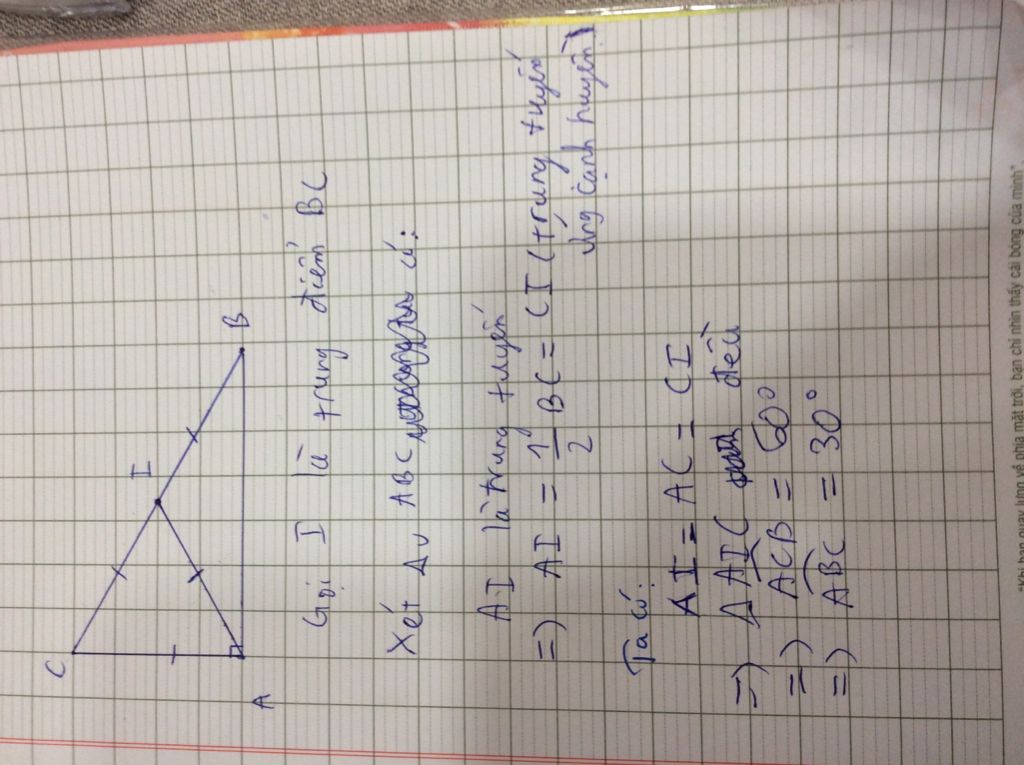 C
I
A
B
Gọi I là trung điểm BC
Xét Δv ABC có:
AI là trung tuyến
=) AI = 1/2 BC = CI (trung tuyến
ứng cạnh huyền)
Ta có:
AI = AC = CI
=) Δ AIC đều
=) ACB = 60°
=) ABC = 30°
"Khi bạn quay lưng về phía mặt trời, bạn chỉ nhìn thấy cái bóng của mình"